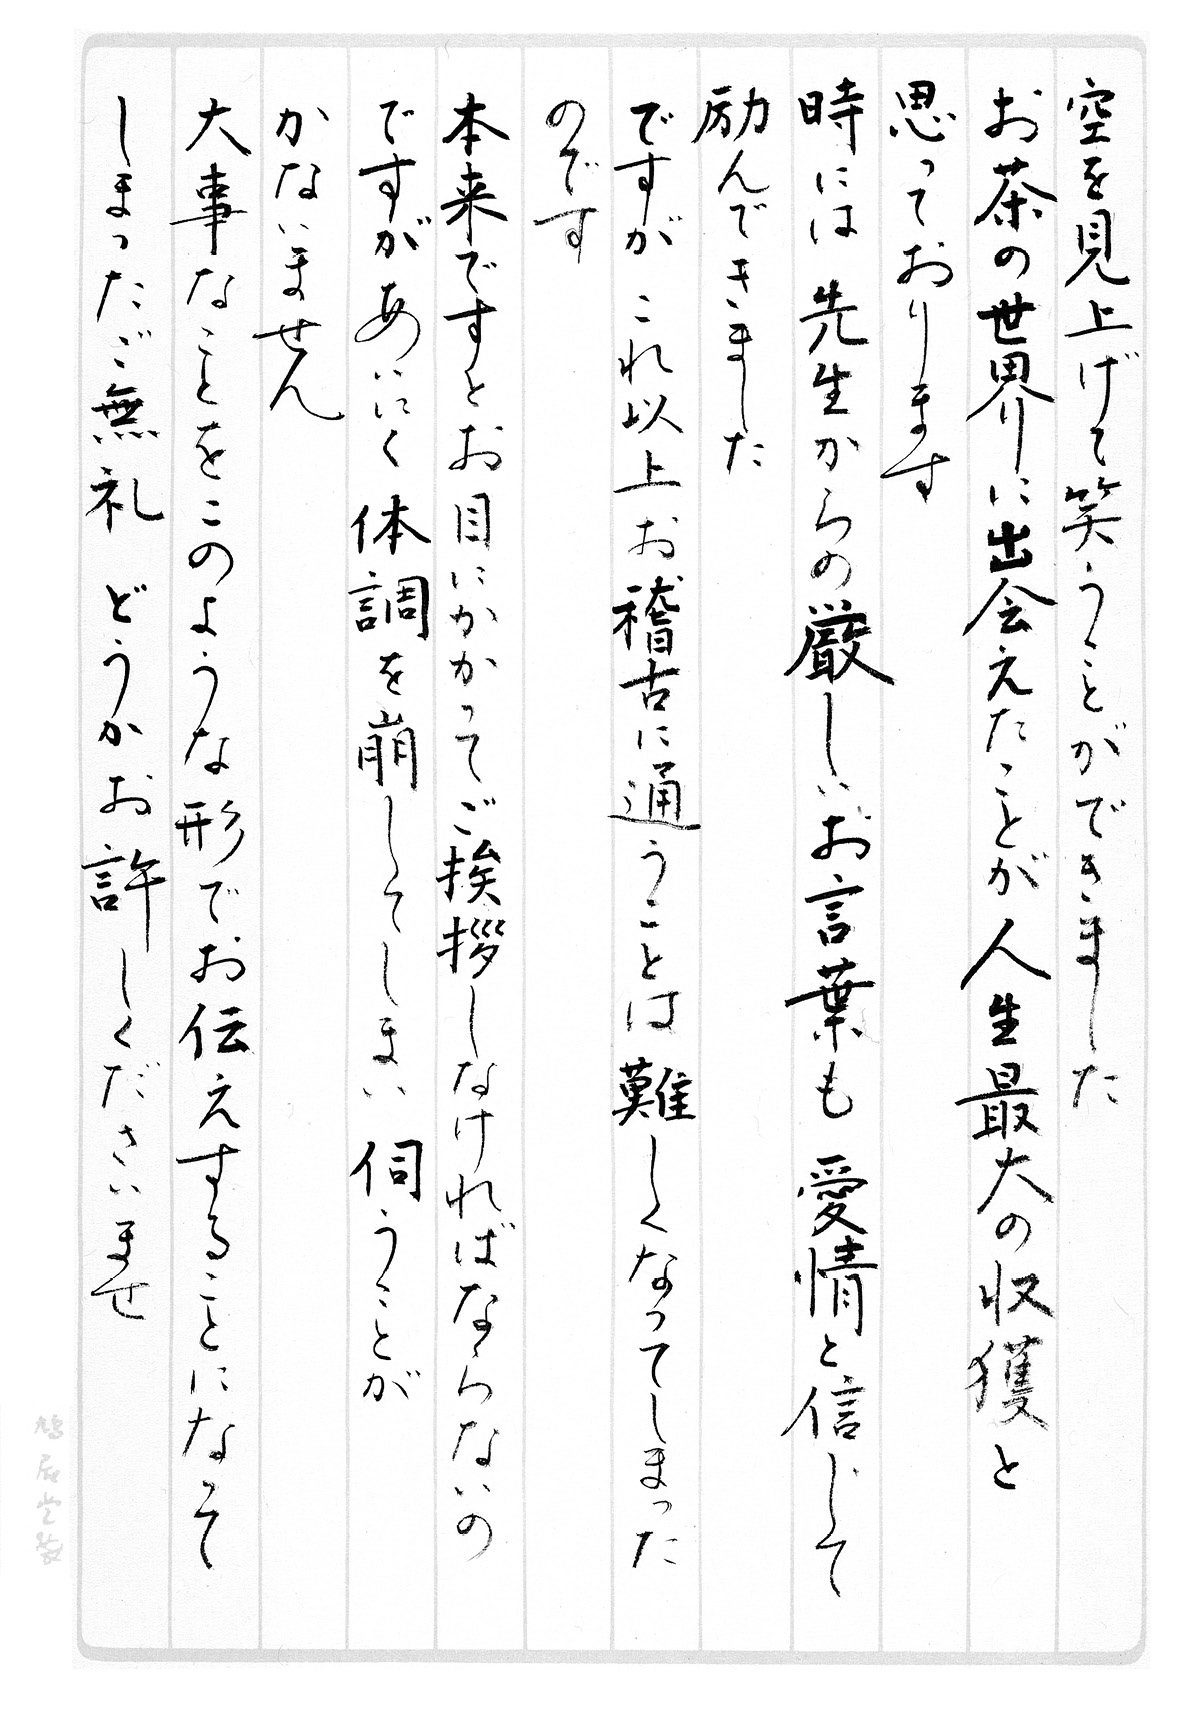 空を見上げて笑うことができました
お茶の世界に出会えたことが人生最大の収獲と
思っております
時には 先生からの厳しいお言葉も 愛情と信じて
励んできました
ですが これ以上お稽古に通うことは難しくなってしまった
のです
本来ですとお目にかかってご挨拶しなければならないの
ですが あいにく 体調を崩してしまい 伺うことが
かないません
大事なことをこのような形でお伝えすることになって
しまったご無礼 どうかお許しくださいませ
鳩居堂製